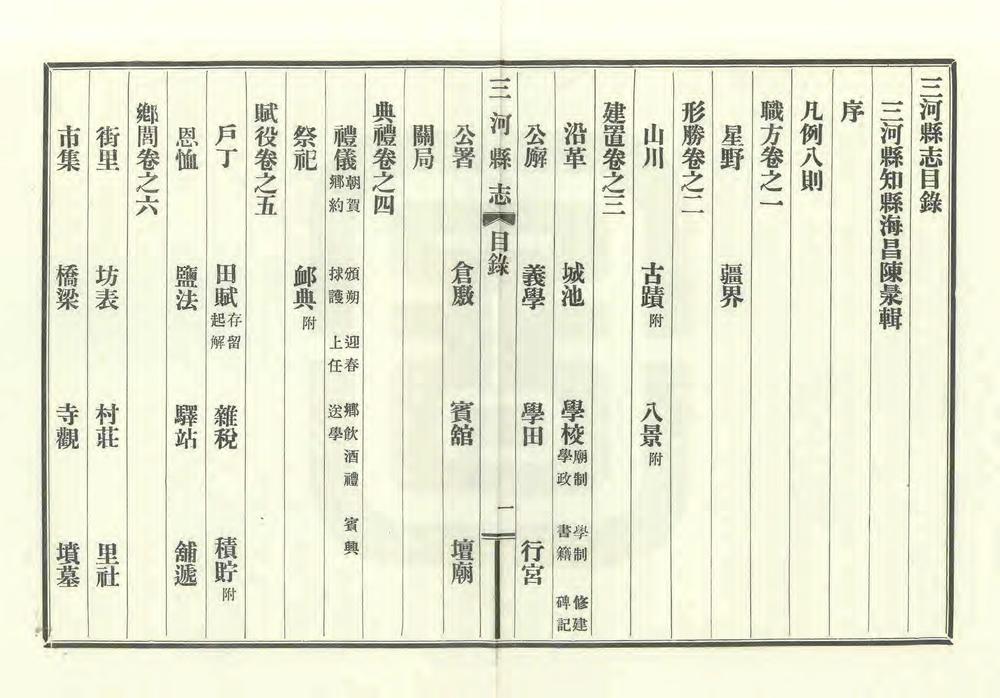 三河縣志目錄
三河縣知縣海昌陳㫤輯
序
凡例八則
職方卷之一
星野 疆界
形勝卷之二
山川 古蹟附 八景附
建置卷之三
沿革 城池 學校廟制 學制 修建 學政 書籍 碑記
公廨 義學 學田 行宮
三河縣志 目錄 一
公署 倉廒 賓舘 壇廟
關局
典禮卷之四
禮儀朝賀 頒朔 迎春 鄉飲酒禮 賓興 鄉約 捄護 上任 送學
祭祀 䘏典附
賦役卷之五
戶丁 田賦存留 起解 雜稅 積貯附
恩恤 鹽法 驛站 舖遞
鄉閭卷之六
街里 坊表 村莊 里社
市集 橋梁 寺觀 墳墓